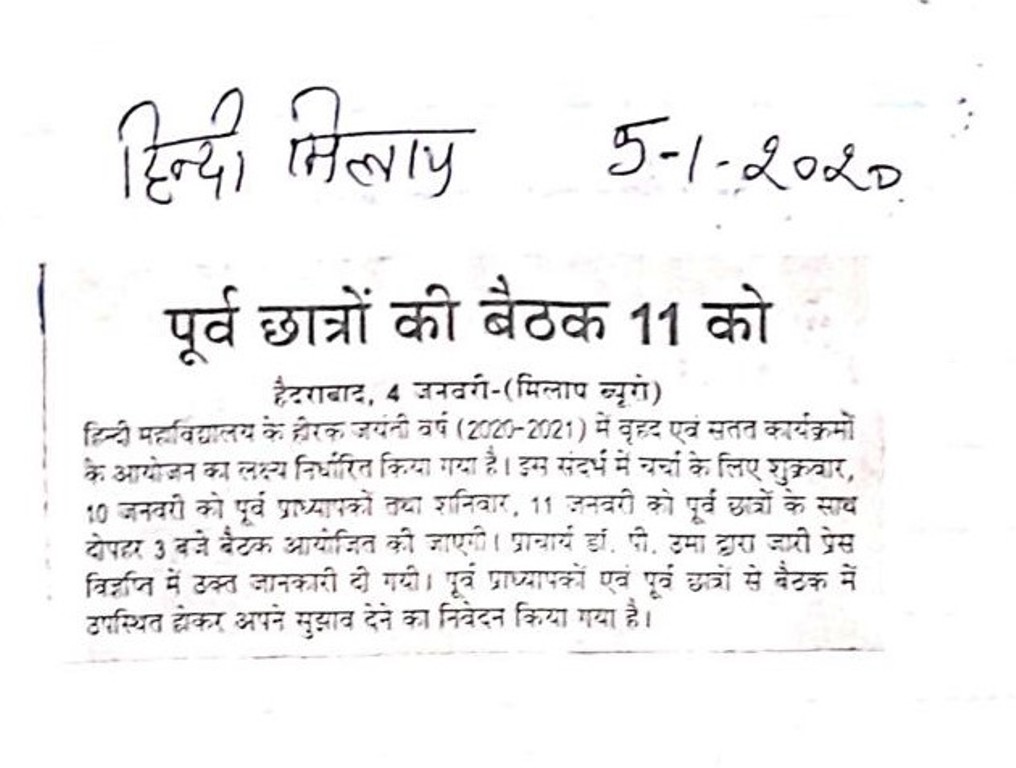 हिन्दी मिलाप 5-1-2020
पूर्व छात्रों की बैठक 11 को
हैदराबाद, 4 जनवरी-(मिलाप ब्यूरो)
हिन्दी महाविद्यालय के हीरक जयंती वर्ष (2020-2021) में वृहद एवं सतत कार्यक्रमों
के आयोजन का लक्ष्य निर्धारित किया गया है। इस संदर्भ में चर्चा के लिए शुक्रवार,
10 जनवरी को पूर्व प्राध्यापकों तथा शनिवार, 11 जनवरी को पूर्व छात्रों के साथ
दोपहर 3 बजे बैठक आयोजित की जाएगी। प्राचार्य डॉ. पी. उमा द्वारा जारी प्रेस
विज्ञप्ति में उक्त जानकारी दी गयी। पूर्व प्राध्यापकों एवं पूर्व छात्रों से बैठक में
उपस्थित होकर अपने सुझाव देने का निवेदन किया गया है।